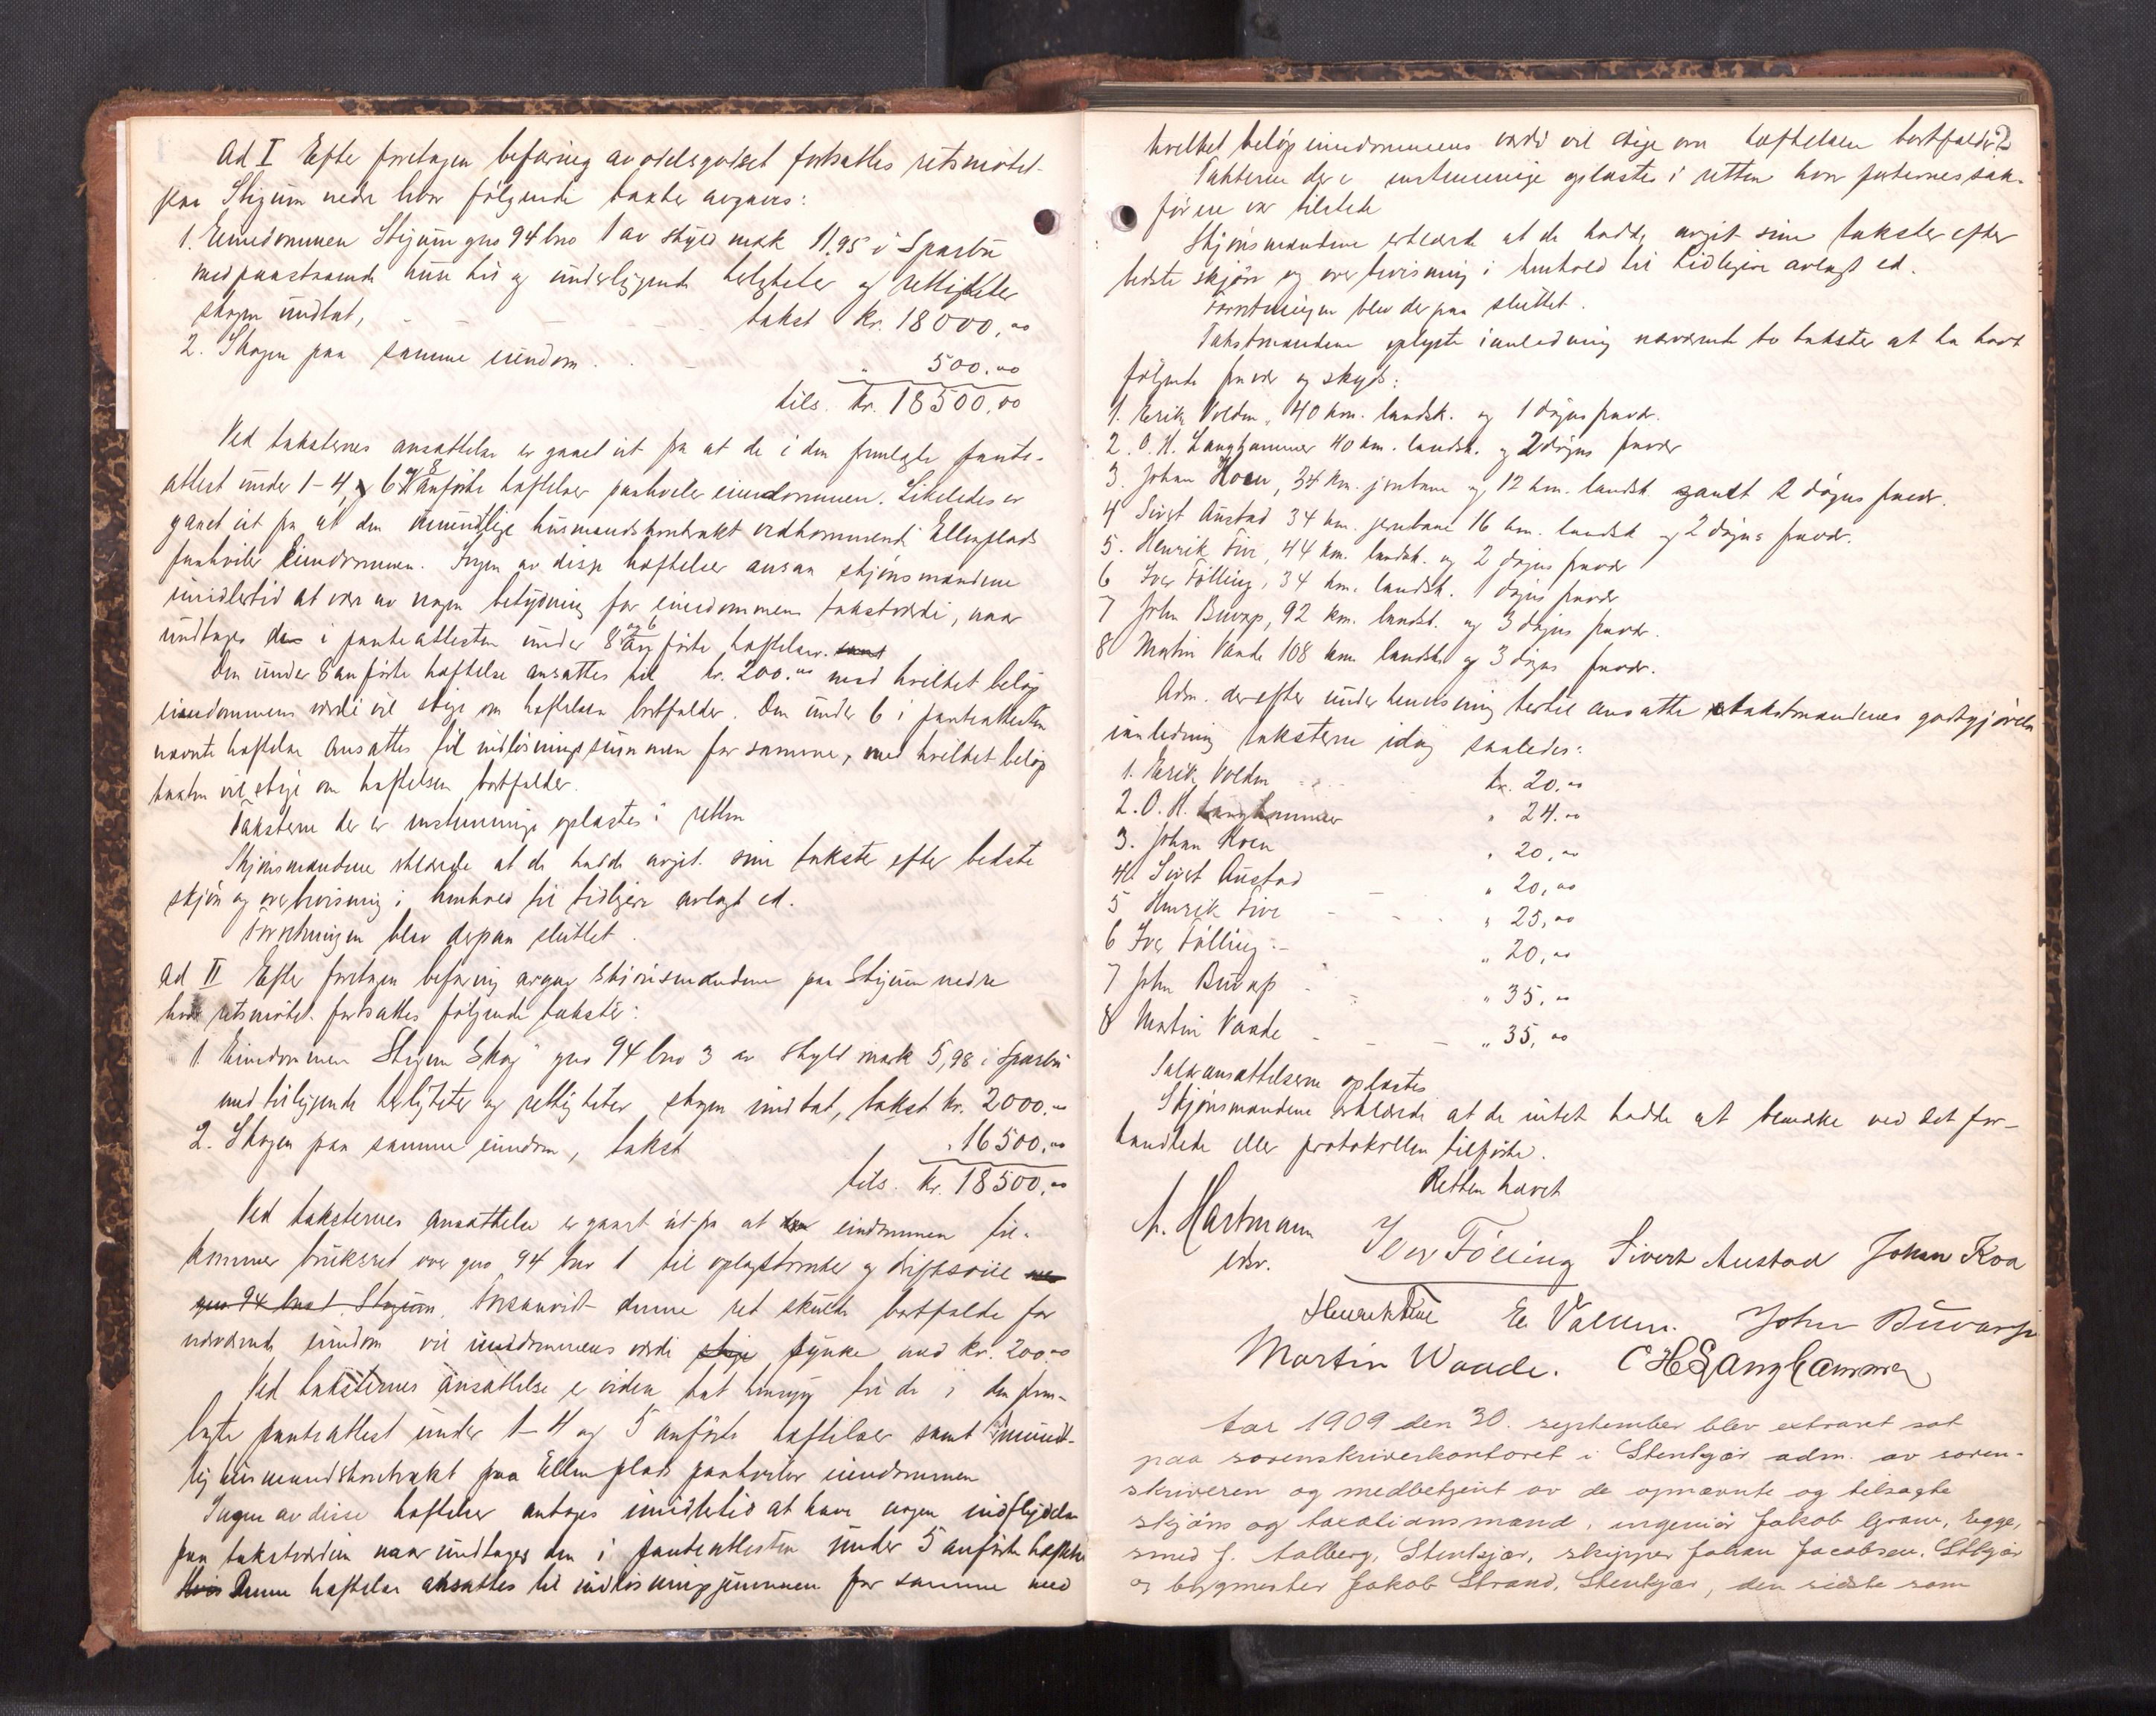 Ad I Efter foretagen befaring av odelsgodset fortsattes retsmötet
paa Stigum nedre hvor fölgende takster avgaves:
1. Eiendommen Stigum gno 94 bno 1 av skyld mark 11,95 i Sparbu
med paastaaende huse til og underliggende herligheter og rettigheter
skogen undtat, takst kr. 18000,00
2. Skogen paa samme eiendom . . " 500.00
tils. kr. 18500,00
Ved taksternes ansættelse er gaaet ut fra at de i den fremlagte pante-
attest under 1-4, og 6 og 8 anförte heftelser paahviler eiendommen. Likeledes er
gaaet ut fra at den mundtlige husmandskontrakt vedkommende Ellenplads
paahviler eiendommen. Ingen av disse heftelser ansaa skjönsmændene
imidlertid at være av nogen betydning for eiendommens takstværdi, naar
undtages de i panteattesten under 8 og 6 anförte heftelser. samt
Den under 8 anförte heftelse ansættes til kr. 200.00 med hvilket belöp
eiendommens værdi vil stige om heftelsen bortfalder. Den under 6 i panteattesten
nævnte heftelse ansættes til indlösningssummen for samme, med hvilket belöp
taksten vil stige om heftelsen bortfalder.
Taksterne der er enstemmige oplæstes i retten
Skjönsmændene erklærede at de hadde avgit sine takster efter bedste
skjön og overbevisning i henhold til tidligere avlagt ed.
Forretningen blev derpaa sluttet.
Ad II Efter foretagen befaring avgav skjönsmændene paa Stigum nedre
hvor retsmötet fortsattes fölgende takster:
1. Eiendommen Stigum Skog" gno 94 bno 3 av skyld mark 5,98 i Sparbu
med tilliggende herligheter og rettigheter skogen undtat, takst kr. 2000.00
2. Skogen paa samme eiendom, takst " 16500,00
tils. kr. 18500,00
Ved taksternes ansættelse er gaaet ut fra at den eiendommen til-
kommer bruksret over gno 94 bno 1 til oplagstomter og driftsveie
gno 94 bno 1 Stigum. Forsaavidt denne ret skulde bortfalde for
nærværende eiendom vil eiendommens værdi stige synke med kr. 200.00
Ved taksternes ansættelse er videre tat hensyn til de i den frem-
lagte panteattest under 1-4 og 5 anförte heftelser samt mundt-
lig husmandskontrakt paa Ellenplads paahviler eiendommen
Ingen av disse heftelser antages imidlertid at have nogen indflydelse
paa takstværdien naar undtages den i panteattesten under 5 anförte heftelse
Hvis Denne heftelse ansættes til indlösningssummen for samme med
hvilket belöp eiendommens værdi vil stige om heftelsen bortfalder
Taksterne der er enstemmige oplæstes i retten hvor parternes sak-
förere var tilstede
Skjönsmændene erklærede at de hadde avgit sine takster efter
bedste skjön og overbevisning i henhold til tidligere avlagt ed.
Forretningen blev derpaa sluttet.
Takstmændene oplyste i anledning nærværende to takster at ha havt
fölgende fravær og skyds:
1. Erik Volden, 40 km. landsk. og 1 dögns fravær.
2. O. H. Langhammer 40 km. landsk. og 2 dögns fravær
3. Johan Koen, 34 km. jernbane og 12 km. landsk. samt 2 dögns fravær.
4 Sivert Austad 34 km. jernbane 16 km. landsk og 2 dögns fravær.
5. Henrik Five, 44 km. landsk. og 2 dögns fravær
6 Iver Fölling, 34 km. landsk. 1 dögns fravær
7 John Buvarp, 92 km. landsk. og 3 dögns fravær.
8 Martin Vaade 108 km landsk og 3 dögns fravær.
Adm. derefter under henvisning hertil ansatte takstmændenes godtgjörelse
i anledning taksterne idag saaledes:
1. Erik Volden kr. 20,00
2. O. H. Langhammer " 24.00
3. Johan Koen " 20,00
4 Sivert Austad " 20,00
5 Henrik Five " 25,00
6 Iver Fölling " 20,00
7 John Buvarp " 35.00
8 Martin Vaade " 35,00
Salæransættelserne oplæstes
Skjönsmændene erklærede at de intet hadde at bemerke ved det for-
handlede eller protokollen tilförte.
Retten hævet
A. Hartmann Iver Fölling Sivert Austad Johan Koa
edsv.
Henrik Five E. Volden. John Buvarp
Martin Waade. O H Langhammer
Aar 1909 den 30. september blev extraret sat
paa sorenskriverkontoret i Stenkjær adm. av soren-
skriveren og medbetjent av de opnævnte og tilsagte
skjöns og taxationsmænd, ingeniör Jakob Gram, Egge,
smed J. Aalberg, Stenkjær, skipper Johan Jacobsen, Stkjær
og bygmester Jakob Strand, Stenkjær, den sidste som